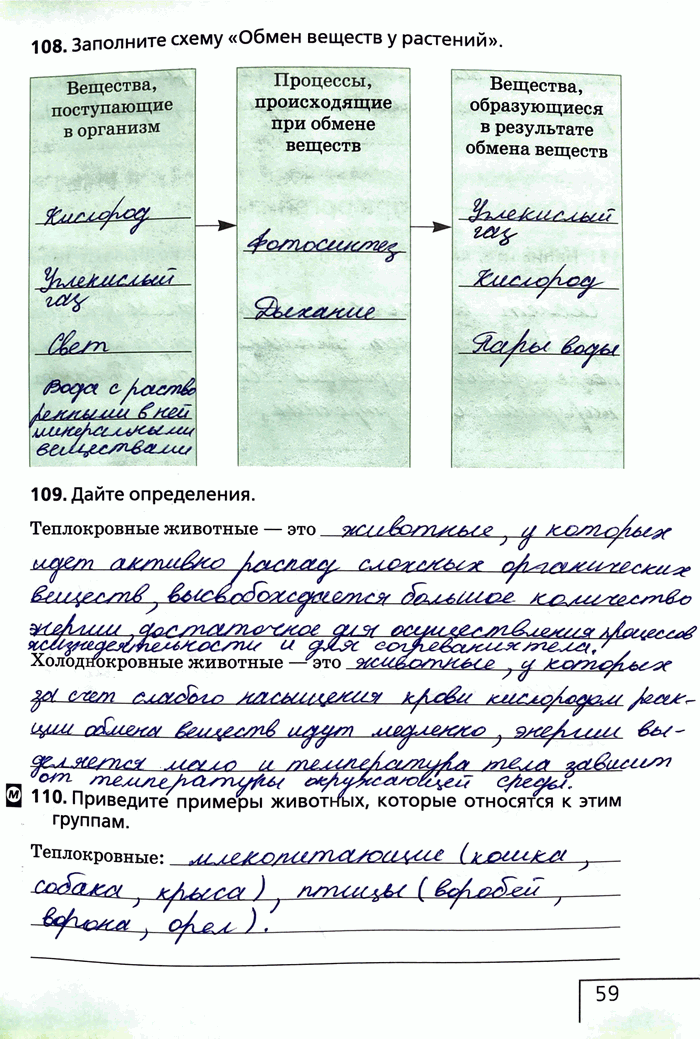 108. Заполните схему «Обмен веществ у растений».
Вещества,
поступающие
в организм
Кислород
Углекислый
газ
Свет
Вода с раство
ренными в ней
минеральными
веществами
Процессы,
происходящие
при обмене
веществ
Фотосинтез
Дыхание
Вещества,
образующиеся
в результате
обмена веществ
Углекислый
газ
Кислород
Пары воды
109. Дайте определения.
Теплокровные животные — это животные, у которых
идет активно распад сложных органических
веществ, высвобождается большое количество
энергии, достаточное для осуществления процессов
жизнедеятельности и для согревания тела.
Холоднокровные животные — это животные, у которых
за счет слабого насыщения крови кислородом реак-
ции обмена веществ идут медленно, энергии вы-
деляется мало и температура тела зависит
от температуры окружающей среды.
М 110. Приведите примеры животных, которые относятся к этим
группам.
Теплокровные: млекопитающие (кошка,
собака, крыса), птицы (воробей,
ворона, орел).
59